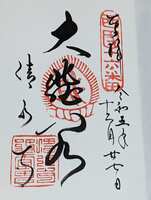 奉拝
令和五年
十二月廿七日
大悲閣
清水寺